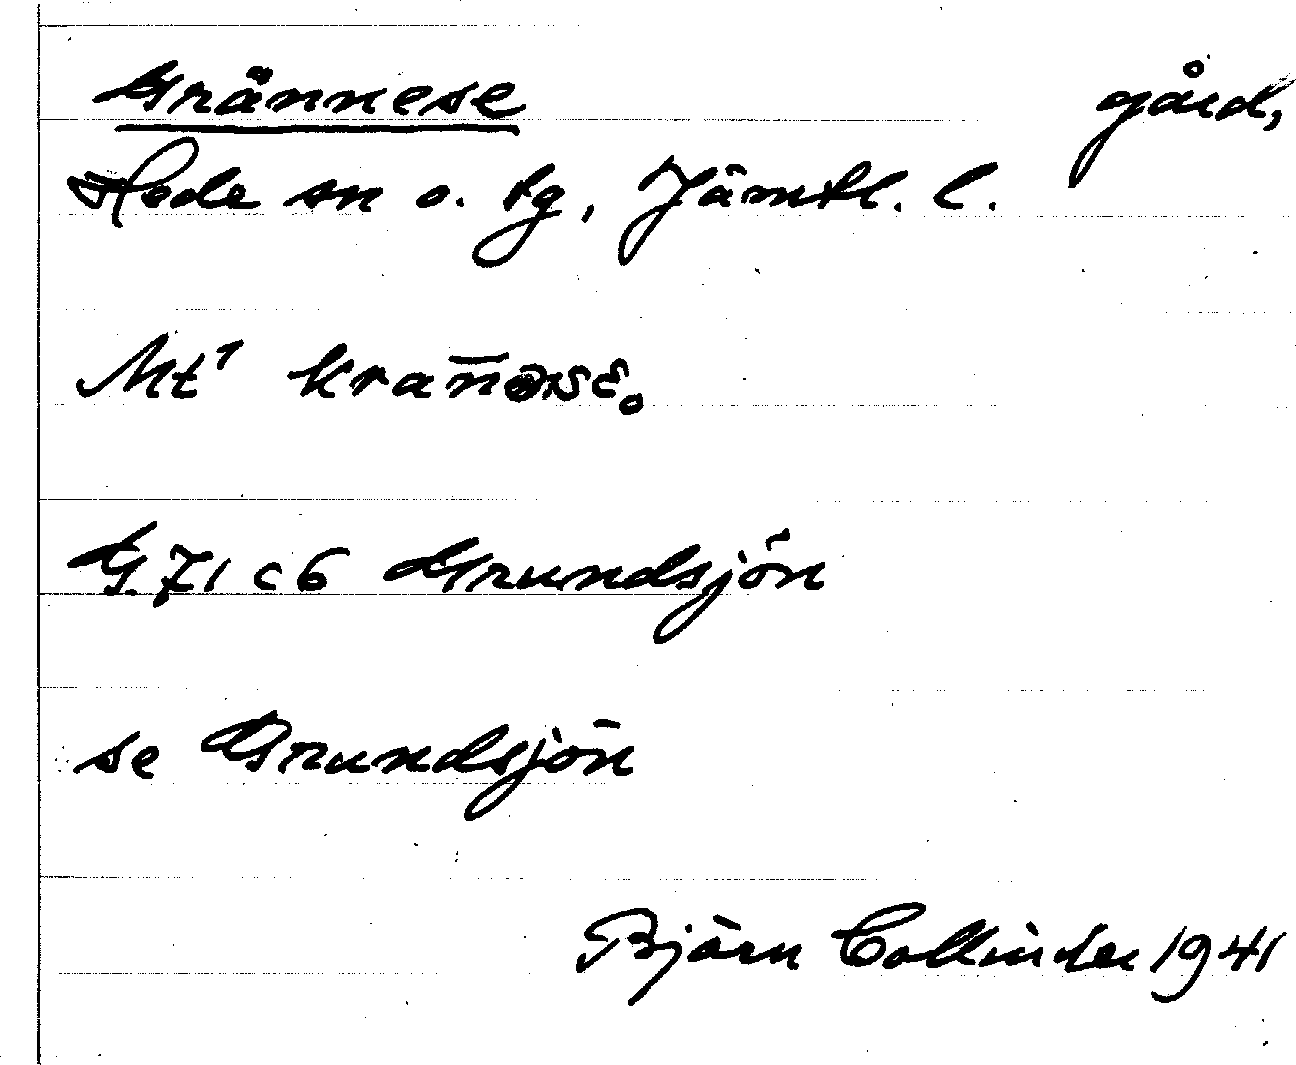 Grännese gård,
Hede sn o. tg, Jämtl. l.
Mt¹
G. 71 c 6 Grundsjön
se Grundsjön
Björn Collinder 1941